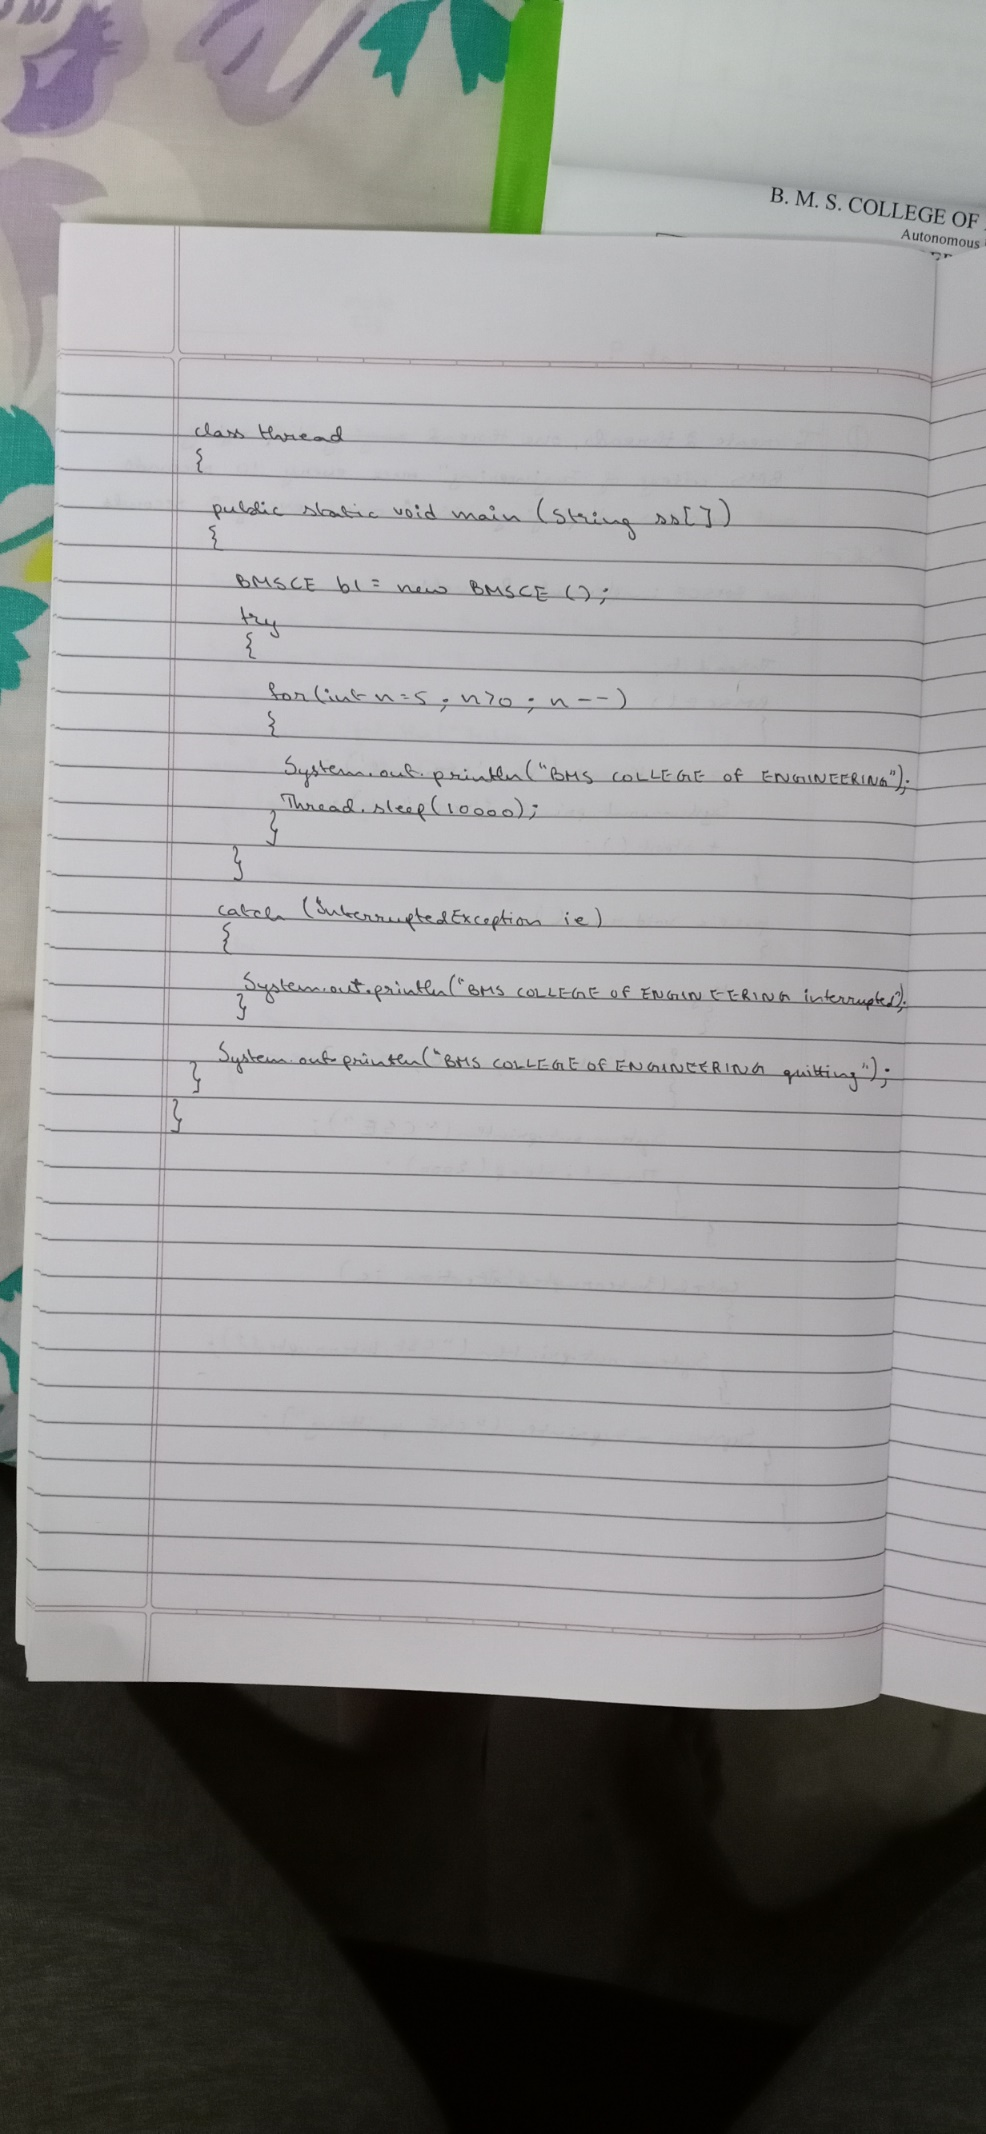 B. M. S. COLLEGE OF
Autonomous
class thread
{
public static void main (String ss[])
{
BMSCE b1 = new BMSCE ();
try
{
for(int n=5 ; n>0 ; n--)
{
System.out.println("BMS COLLEGE of ENGINEERING");
Thread.sleep(10000);
}
}
catch (InterruptedException ie)
{
System.out.println("BMS COLLEGE OF ENGINEERING interrupted");
}
System.out.println("BMS COLLEGE OF ENGINEERING quitting");
}
}